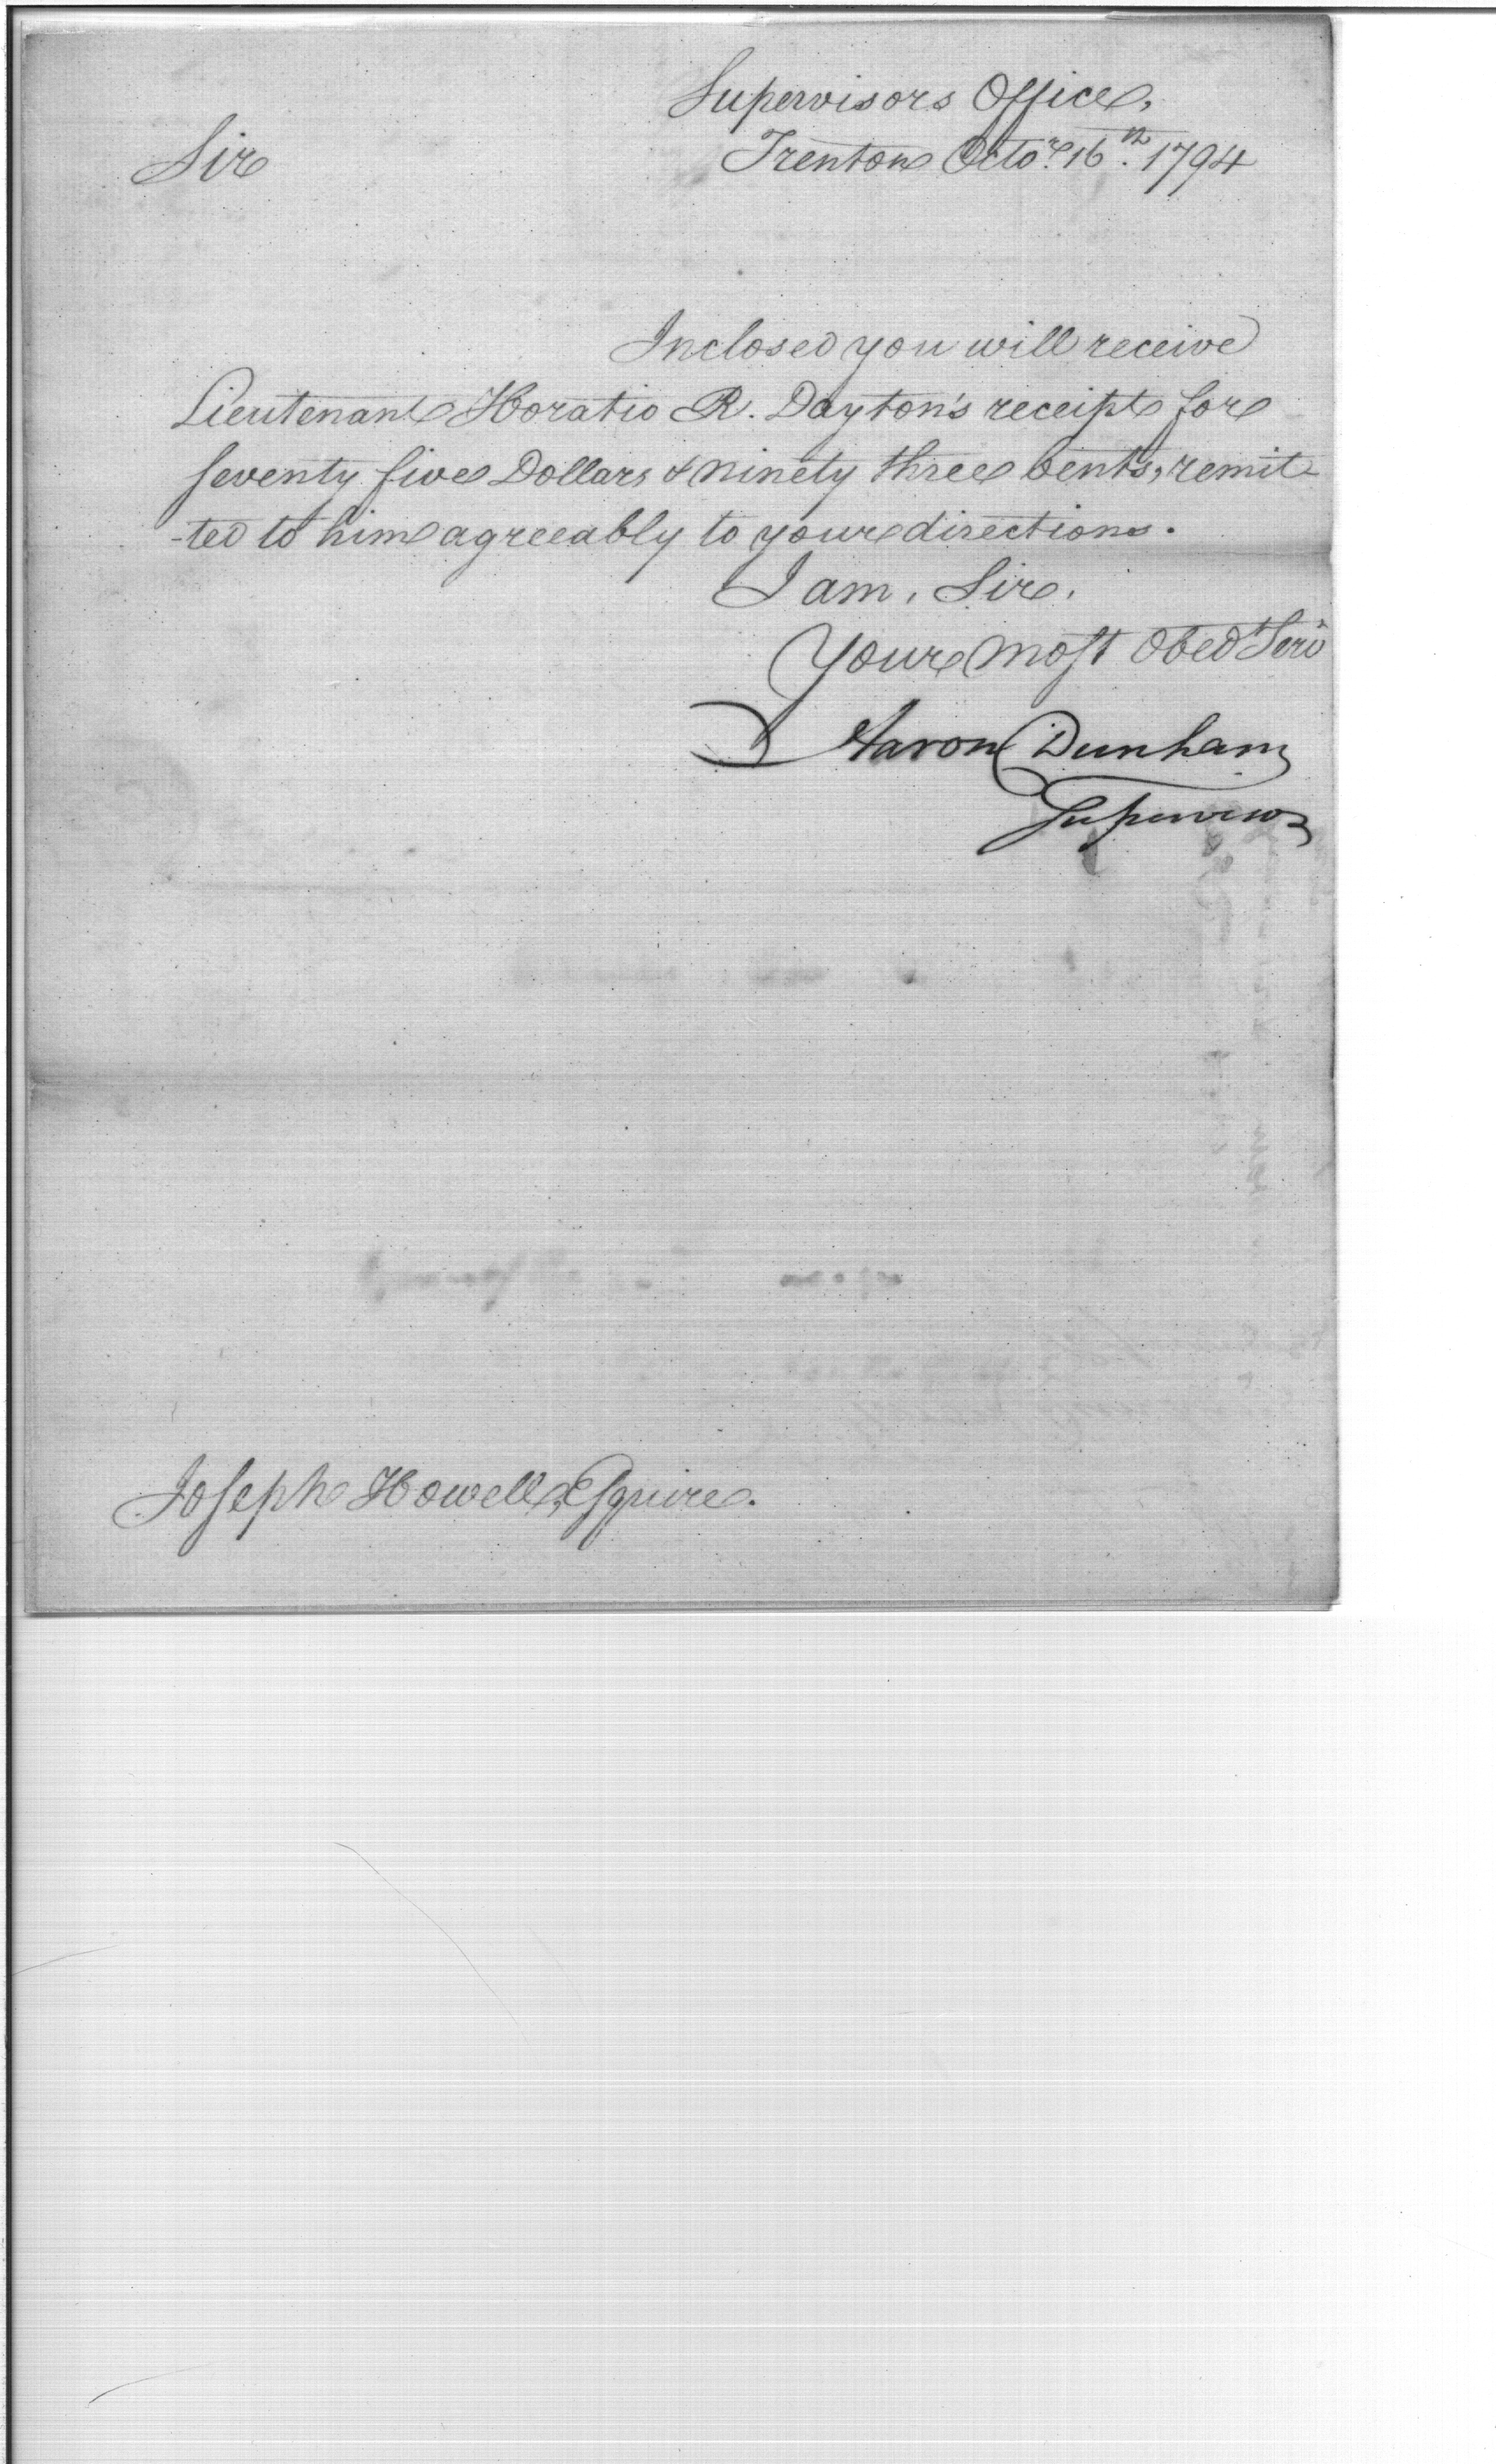 Supervisors Office,
Trenton Octo.r 16th. 1794
Sir
Inclosed you will receive
Lieutenant Horatio R. Dayton's receipt for
seventy five Dollars & ninety three Cents, remit
-ted to him agreeably to your directions.
I am, Sir,
Your most Obedt Servt
Aaron Dunham
Supervisor
Joseph Howell, Esquire.